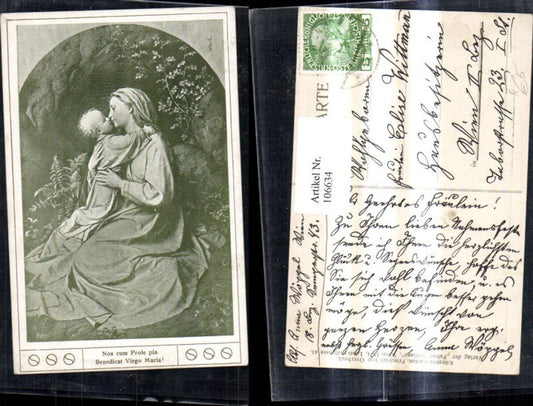 Nos cum Prole pia
Benedicat Virgo Maria!
5
5
KARTE
Artikel Nr.
106634
Wohlgeboren
Fräulein Elise Wittman
Hausbesitzerin
Wien II. Bez.
Taborstrasse 23, I. St.
Geehrtes Fräulein!
Zu Ihrem lieben Namensfeste
sende ich Ihnen die herzlichsten
Glück u. Segenswünsche, hoffe daß
Sie sich wohl befinden u. es
Ihnen mit die Augen besser gehen
möge, dies wünscht von
ganzen Herzen, Ihre erg.
Anna Wöppel
Anna Wöppel Wien
Friedrich von Overbeck
Verlag der